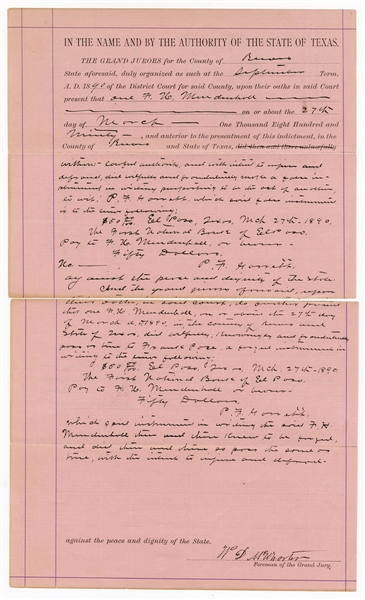 IN THE NAME AND BY THE AUTHORITY OF THE STATE OF TEXAS.
THE GRAND JURORS for the County of Reeves
State aforesaid, duly organized as such at the September Term,
A. D. 1890 of the District Court for said County, upon their oaths in said Court
present that one F. H. Mendenhall
on or about the 27th
day of March One Thousand Eight Hundred and
Ninety, and anterior to the presentment of this indictment, in the
County of Reeves and State of Texas, did then and there unlawfully
without lawful authority, and with intent to injure and
defraud, did wilfully and fraudulently make a false in-
strument in writing purporting to be the act of another
to wit: P. F. which said false instrument
is to the tenor following:
$50 El Paso, Texas, Mch 27th 1890.
The First National Bank of El Paso.
Pay to F. H. Mendenhall, or bearer
Fifty Dollars.
No. P. F.
against the peace and dignity of the State.
And the grand jurors aforesaid, upon
their oaths, in said court, do further present
that one F. H. Mendenhall, on or about the 27th day
of March A.D. 1890, in the county of Reeves and
State of Texas, did wilfully, knowingly and fraudulently
pass as true to Frank Pase a forged instrument in
writing to the tenor following:
$50 El Paso, Texas, Mch. 27th 1890
The First National Bank of El Paso
Pay to F. H. Mendenhall or bearer
Fifty Dollars
P. F.
which said instrument in writing the said F. H.
Mendenhall then and there knew to be forged,
and did then and there so pass the same as
true, with the intent to injure and defraud.
against the peace and dignity of the State.
Foreman of the Grand Jury.